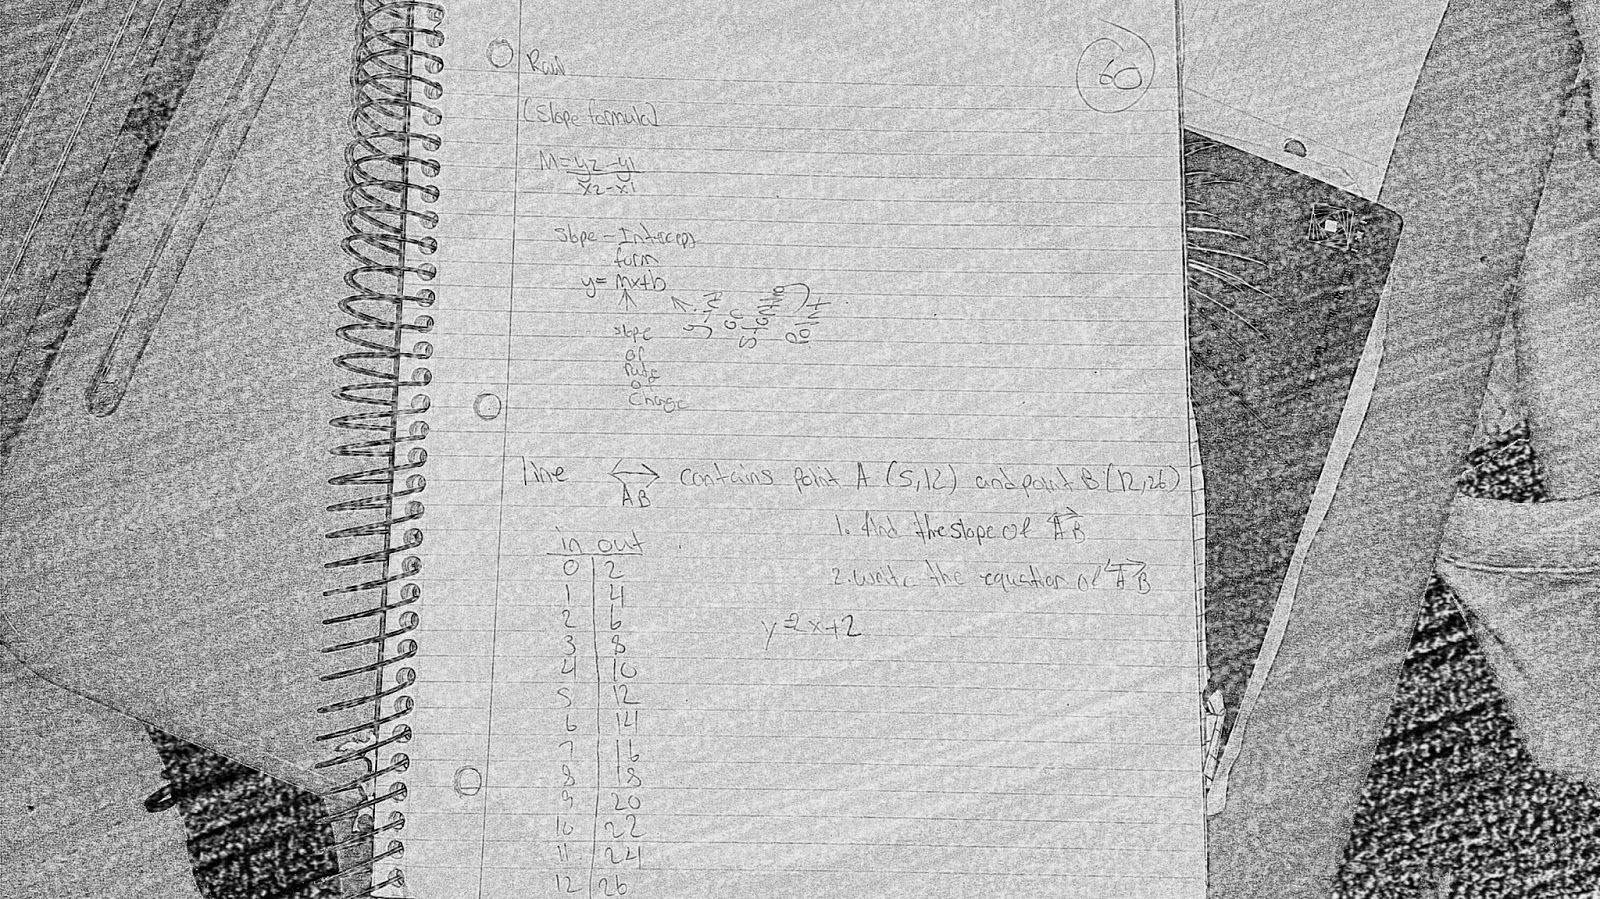 60
(slope formula)
M=y2-y1
x2-x1
slope-Intercept
form
y=mx+b
slope
or
rate
of
change
line AB contains point A (5,12) and point B (12,26)
1. find the slope of AB
2. write the equation of AB
y=2x+2
in out
0 2
1 4
2 6
3 8
4 10
5 12
6 14
7 16
8 18
9 20
10 22
11 24
12 26